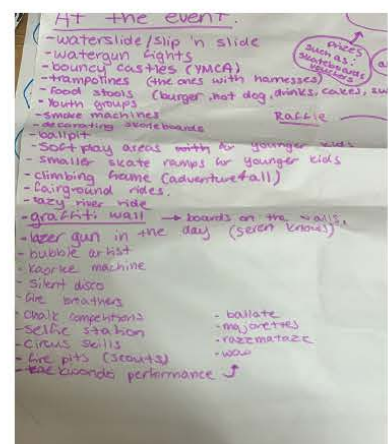 At the event.
- waterslide/slip 'n slide
- watergun fights
- bouncy castles (YMCA)
- trampolines (the ones with harnesses)
- food stools (burger, hot dog, drinks, cakes, sw
- Youth groups
- smoke machines
- decorating skateboards
- ballpit
- soft play areas with for younger kids
- smaller skate ramps for younger kids
- climbing frame (adventure4all)
- fairground rides.
- lazy river ride
- graffiti wall → boards on the walls.
- lazer gun in the day (seren knows)
- bubble artist
- machine
- silent disco
- fire breathers
- chalk competitions
- selfie station
- circus skills
- fire pits (scouts)
- taekwondo performance
prizes
such as:
skateboards
vouchers
Raffle
- ballate
- majorettes
- razzmataze
- wow